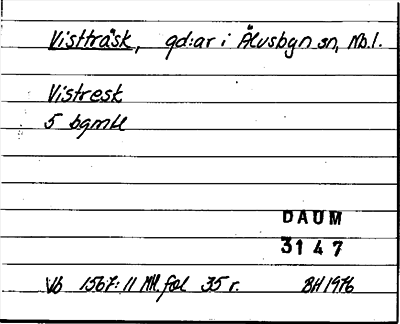 Vistträsk, gd:ar i Älvsbyn sn, Nb.l.
Vistresk
5 bgmtl
DAUM
3147
Vb 1567:11 Ml. fol 35 r. BH 1976